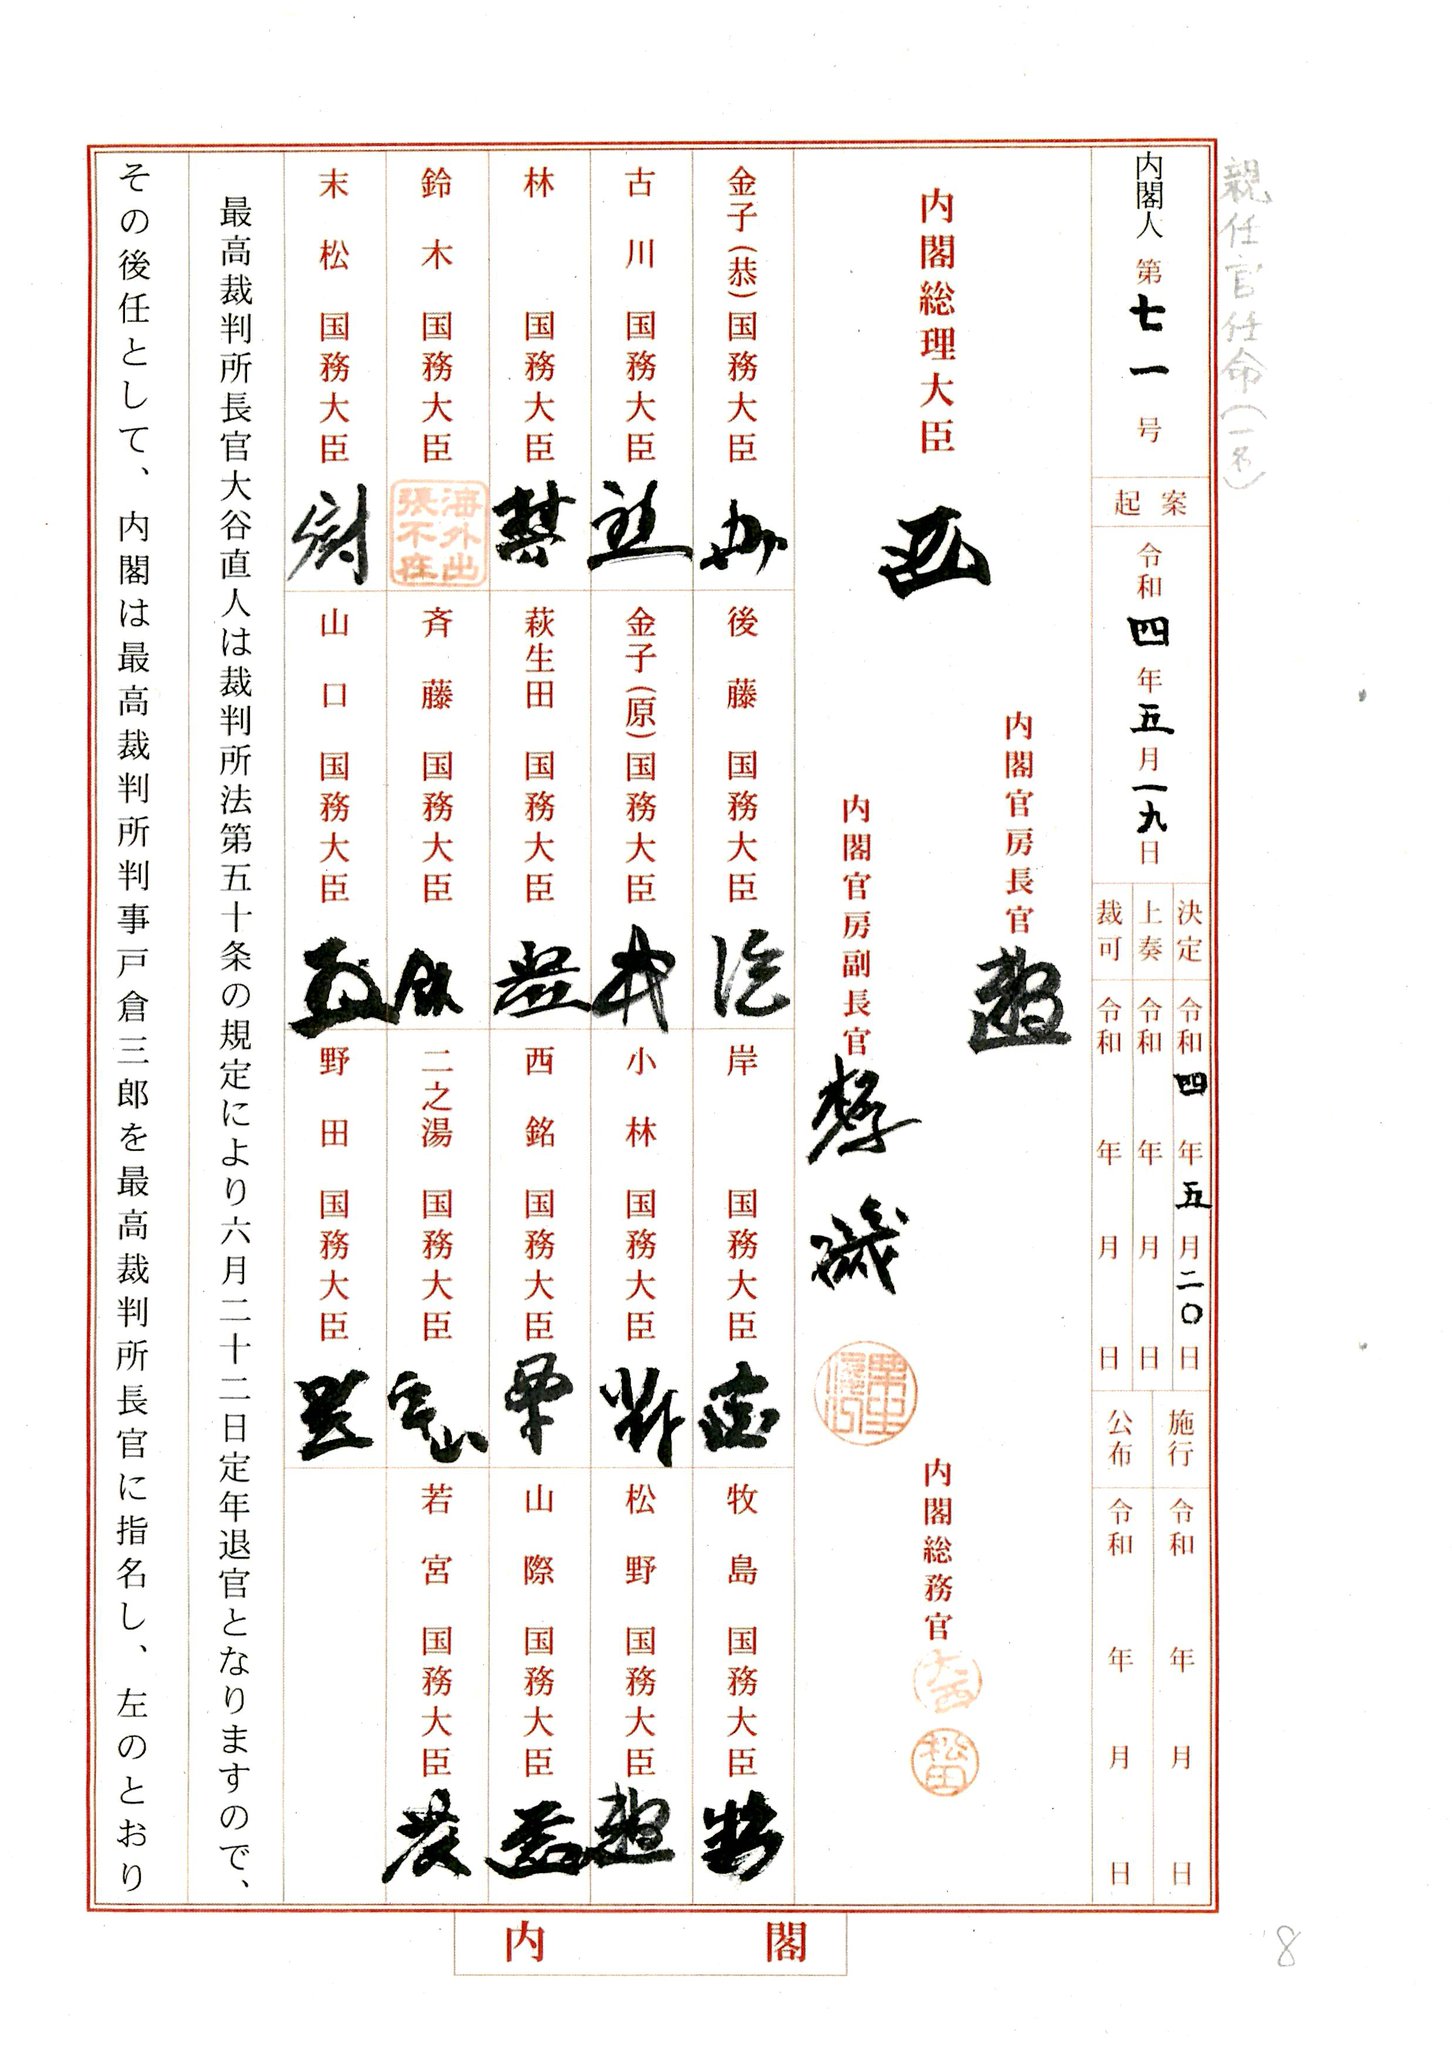 親任官任命(一名)
内閣人第七一号
起案
令和四年五月一九日
決定 令和四年五月二〇日
上奏 令和 年 月 日
裁可 令和 年 月 日
施行 令和 年 月 日
公布 令和 年 月 日
内閣官房長官
内閣総理大臣
内閣官房副長官
内閣総務官
大西
松田
金子(恭)国務大臣
後藤 国務大臣
岸 国務大臣
牧島 国務大臣
古川 国務大臣
金子(原)国務大臣
小林 国務大臣
松野 国務大臣
林 国務大臣
萩生田 国務大臣
西銘 国務大臣
山際 国務大臣
鈴木 国務大臣
海外出張不在
斉藤 国務大臣
二之湯 国務大臣
若宮 国務大臣
末松 国務大臣
山口 国務大臣
野田 国務大臣
最高裁判所長官大谷直人は裁判所法第五十条の規定により六月二十二日定年退官となりますので、
その後任として、内閣は最高裁判所判事戸倉三郎を最高裁判所長官に指名し、左のとおり
内閣
8